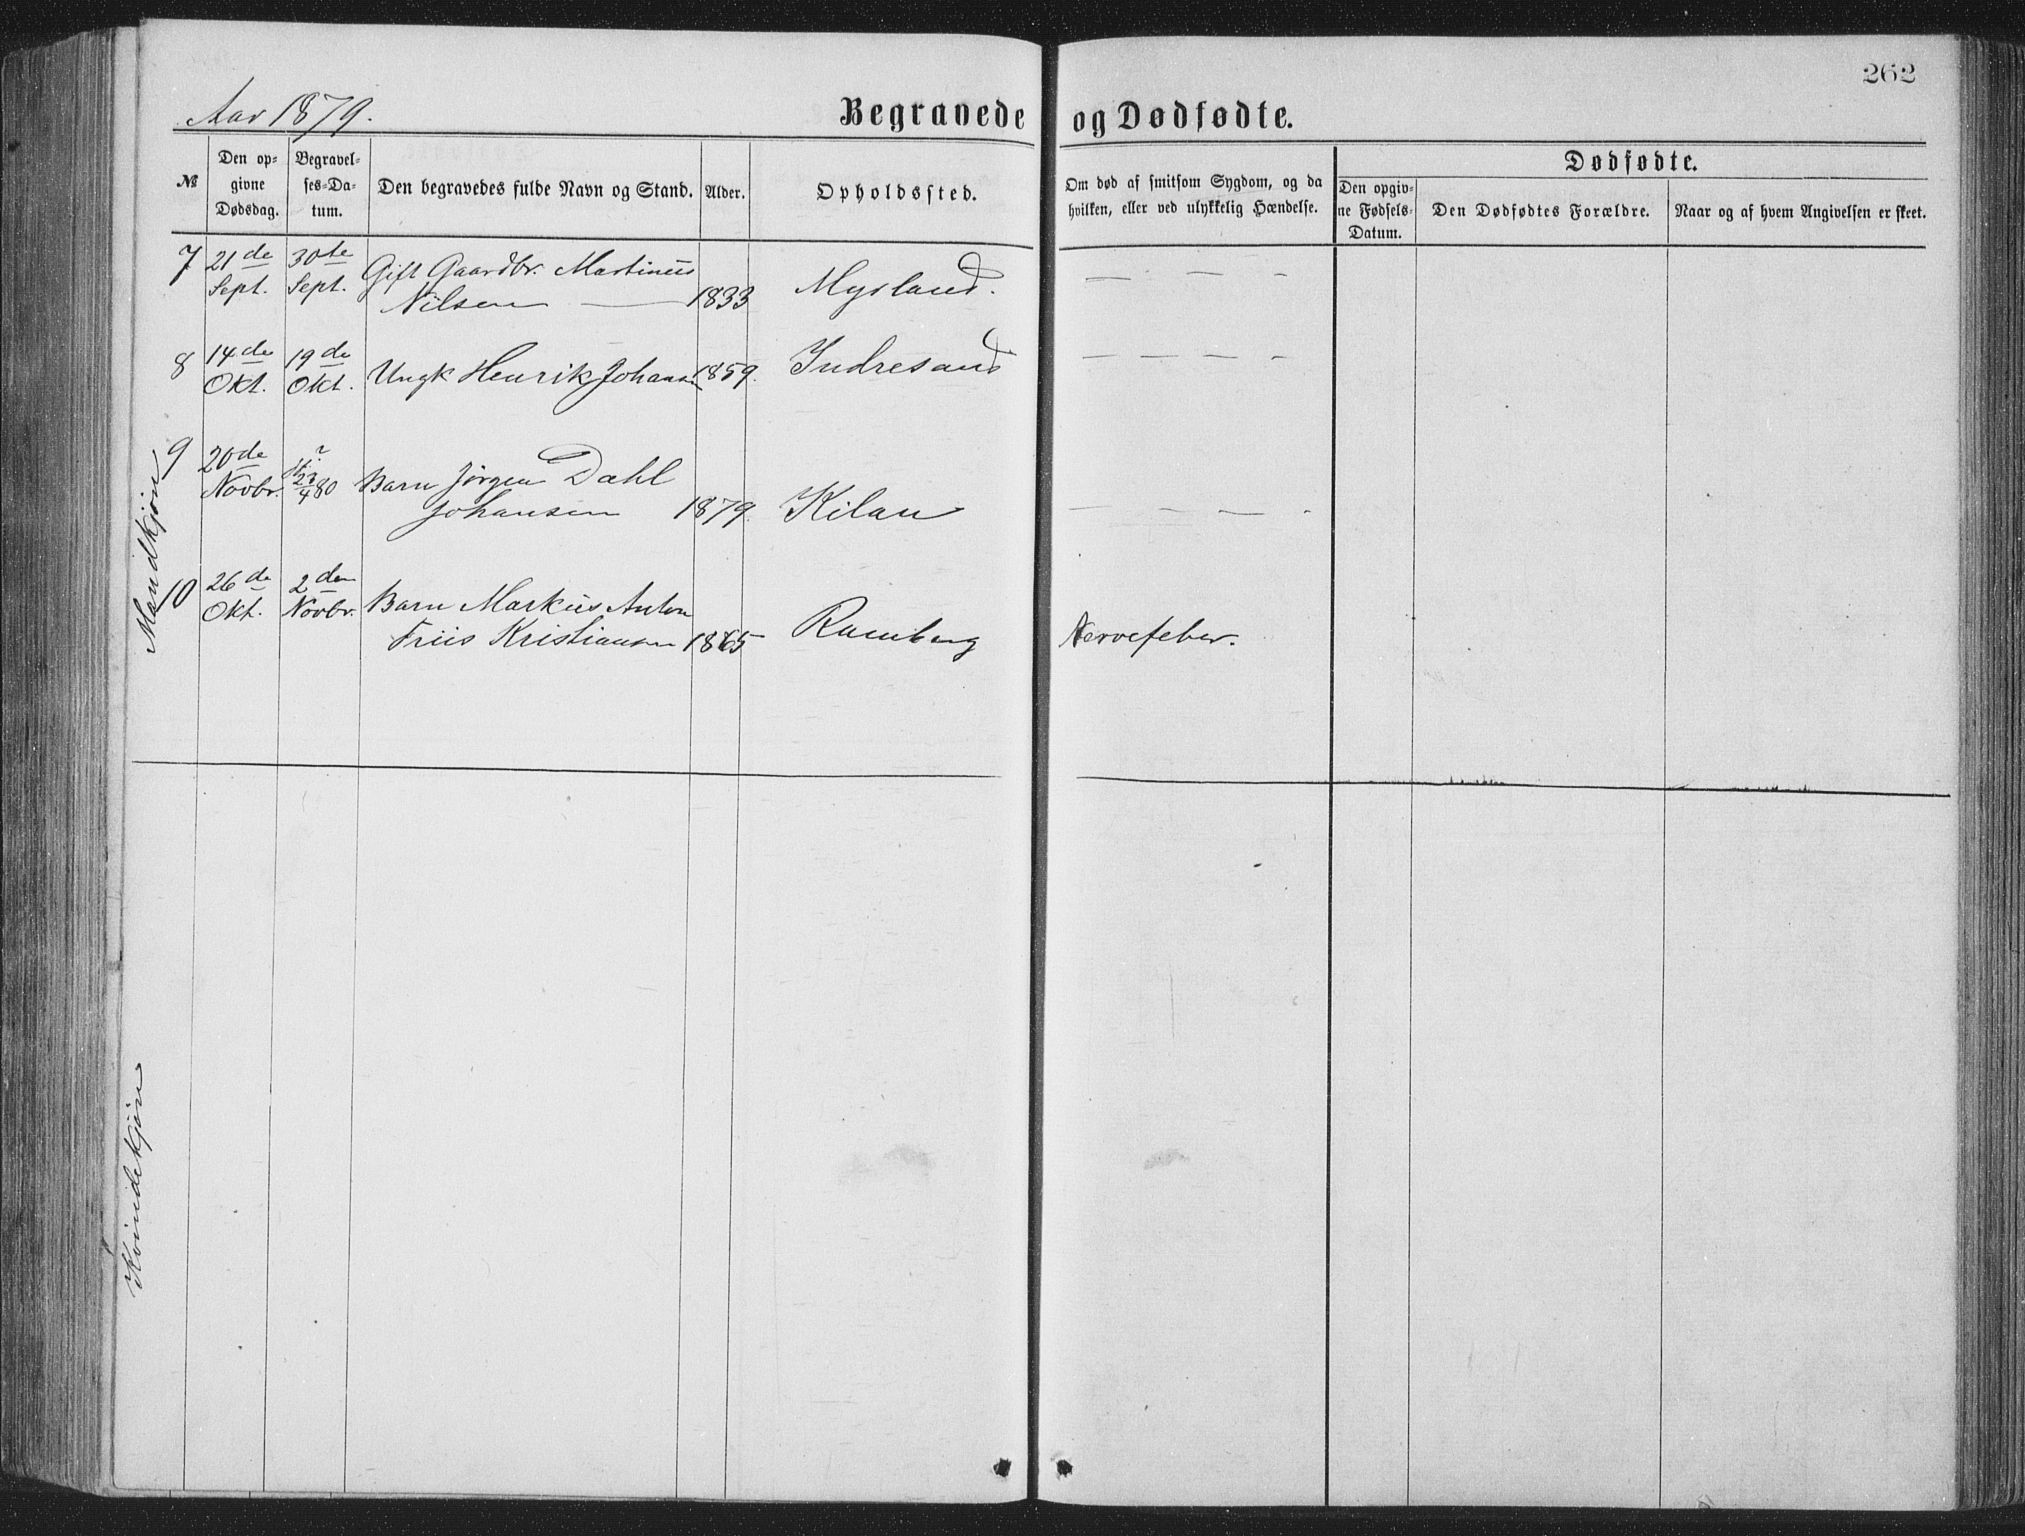 262
Aar 1879.
Begravede og Dødfødte.
№
Den op-
givne
Dødsdag.
Begravel-
ses-Da-
tum.
Den begravedes fulde Navn og Stand.
Alder.
Opholdssted.
Om død af smitsom Sygdom, og da
hvilken, eller ved ulykkelig Hændelse.
Dødfødte.
Den opgiv-
ne Fødsels-
Datum.
Den Dødfødtes Forældre.
Naar og af hvem Angivelsen er skeet.
Mandkjøn
7 21de 30te Gift Gaardbr. Martinus
Sept. Sept. Nilsen — 1833 Mysland. — - — -
8 14de 19de
Okt. Okt. Ungk Henrik Johansen 1859. Indresand — — — -
9 20de ?
Novbr. 23/4 80 Barn Jørgen Dahl
Johansen 1879. Kilan — — — -
10 26de 2den
Okt. Novbr. Barn Markus Anton
Friis Kristiansen 1865 Ramberg Nervefeber.
Kvindekjøn